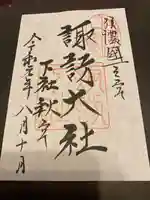 信濃國
一之宮
諏訪大社
下社秋宮
令和元年八月十日